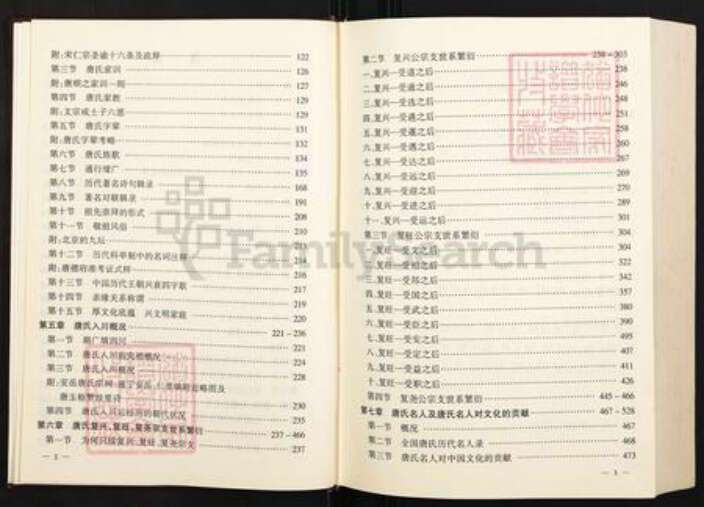 附:宋仁宗圣谕十六条及疏释 122
第三节 唐氏家训 126
附:唐顺之家训一则 127
第四节 唐氏家教 127
附:文宗戒士子六愿 129
第五节 唐氏字辈 131
附:唐氏字辈考略 132
第六节 唐氏族歌 131
第七节 通行增广 135
第八节 历代著名诗句辑录 168
第九节 著名对联辑录 191
第十节 祖先崇拜的形式 208
第十一节 敬祖风俗 210
附:北京的九坛 213
第十二节 历代科举制中的名词注释 214
附:唐德府准考证式样 216
第十三节 中国历代王朝兴衰四字歌 217
第十四节 亲缘关系称谓 219
第十五节 厚文化底蕴 兴文明家庭 220
第五章 唐氏入川概况 221－236
第一节 湖广填四川 221
第二节 唐氏入川前先祖概况 224
第三节 唐氏入川概况
唐玉
第四节 唐氏入川后 235
第六章 唐氏复兴、复旺、复尧宗支世系繁衍 237－466
第一节 为何只续复兴、复旺、复尧宗支 237
— 2 —
第二节 复兴公宗支世系繁衍 238－303
一、复兴—受道之后 238
二、复兴—受通之后 246
三、复兴—受选之后 248
四、复兴—受遇之后 251
五、复兴—受遵之后 258
六、复兴—受 之后 260
七、复兴—受达之后 267
八、复兴—受远之后 269
九、复兴—受迎之后 270
十、复兴—受进之后 289
十一、复兴—受运之后 301
第三节 复旺公宗支世系繁衍 304
一、复旺—受文之后 304
二、复旺—受相之后 322
三、复旺—受邦之后 342
四、复旺—受国之后 357
五、复旺—受武之后
六、复旺—受臣之后
七、复旺—受安之后
八、复旺—受定之后 407
九、复旺—受益之后 411
十、复旺—受职之后 427
第四节 复尧公宗支世系繁衍 445－466
第七章 唐氏名人及唐氏名人对文化的贡献 467－528
第一节 概况 467
第二节 全国唐氏历代名人录 468
第三节 唐氏名人对中国文化的贡献 473
— 3 —
FamilySearch